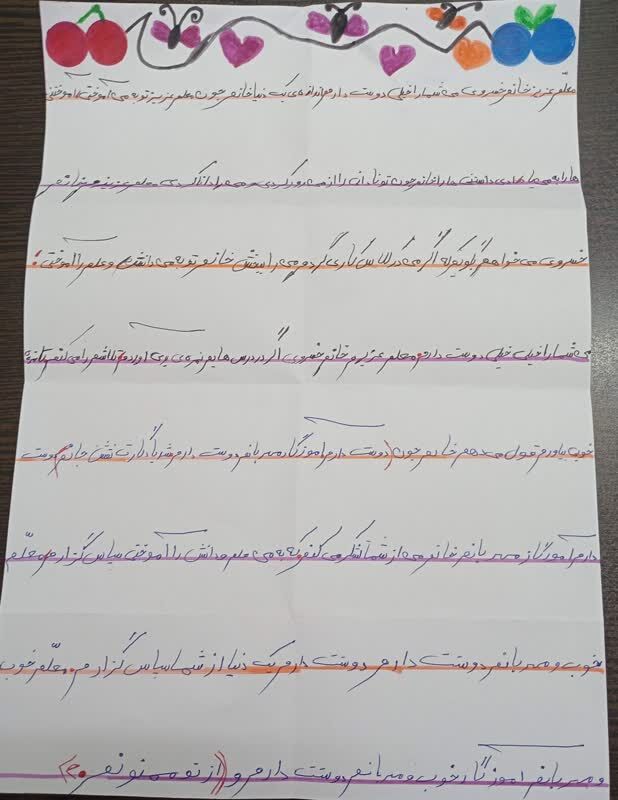 معلم عزیز خانم خسروی من شما را خیلی دوست دارم اندازه‌ی یک دنیا خانم جون معلم عزیز تو به من آموختی آموختنی
ها را به من یاد دادی دانستن را خانم جون تو نادانی را از من دور کردی من را دانا کردی معلم عزیزم
خسروی می خواهم بگویم که اگر من در کلاس کاری کردم من را ببخش خانم تو به من دانش و علم را آموختی؛
من شما را خیلی خیلی دوست دارم معلم عزیزم خانم خسروی اگر در درس هایم نمره ی بدی آوردم تلاشم را می کنم تا نمره
خوب بیاورم قول می دهم خانم جون (دوست دارم آموزگار مهربانم دوست دارم شد یادگارت نقش جانم) دوست
دارم آموزگار مهربانم خانم من از شما تشکر می کنم که به من علم و دانش را آموختی سپاس گزارم معلّم
خوب و مهربانم دوست دارم دوست دارم یک دنیا از شما سپاس گزارم معلّم خوب
و مهربانم آموزگار خوب و مهربانم دوست دارم و ((از تو ممنونم))